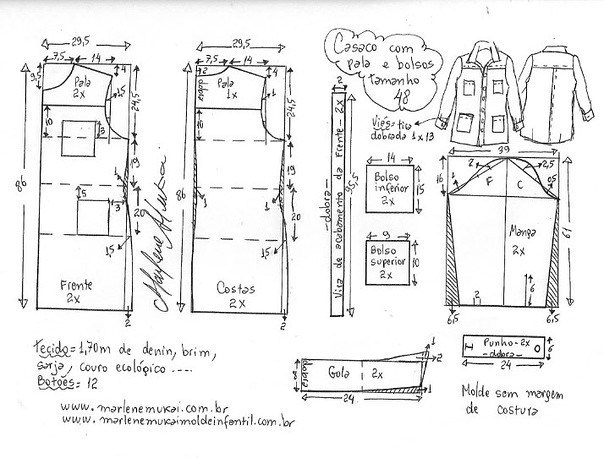 29,5
7,5
14
9,5
4
Pala
2x
1,5
24,5
10
3
19
1
5
3
20
1,5
86
Frente
2x
2
Marlene Mukai
29,5
7,5
14
2
4
dobra
Pala
1x
1
24,5
10
19
1
1
20
1,5
86
Costas
2x
2
Casaco com
pala e bolsos
tamanho
48
Viés=tira
dobrada 1x13
2
Vira de acabamento da Frente - 2x
-dobra-
85,5
14
Bolso
inferior
2x
15
9
Bolso
superior
2x
10
39
16
2
2,5
F
C
1
0,5
61
Manga
2x
6
2
6,5
6,5
Punho-2x
-dobra-
6
24
dobra
8
Gola
2x
1
2
1
24
Tecido=1,70m de denin, brim,
sarja, couro ecológico ....
Botões= 12
www.marlenemukai.com.br
www.marlenemukaimoldeinfantil.com.br
Molde sem margem
de costura